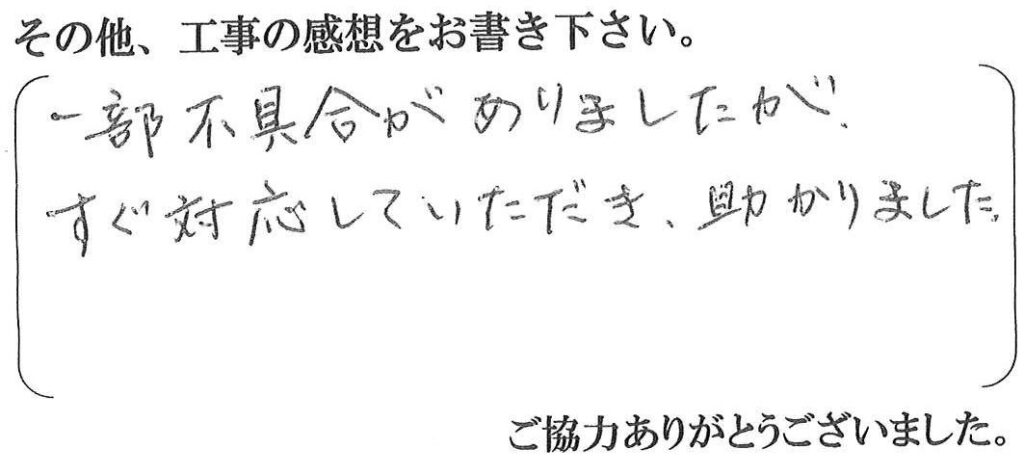 その他、工事の感想をお書き下さい。
一部不具合がありましたが、
すぐ対応していただき、助かりました。
ご協力ありがとうございました。